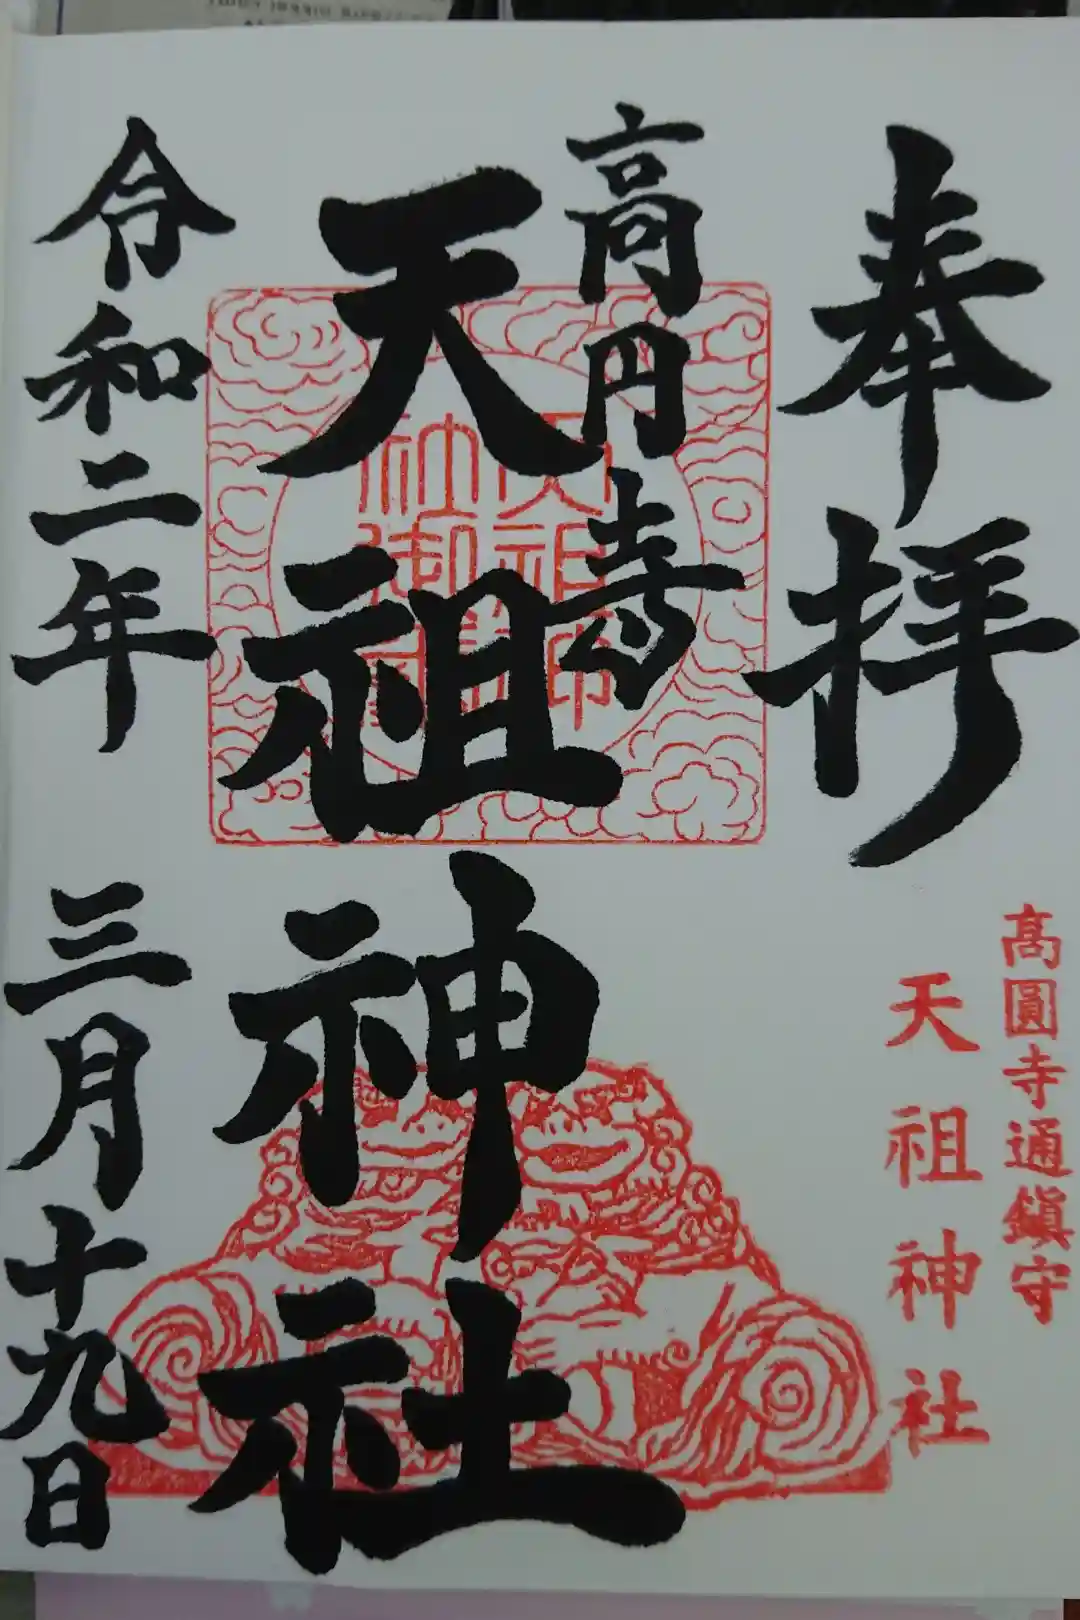 奉拝
高圓寺通鎮守
天祖神社
高円寺
天祖神社
令和二年 三月十九日